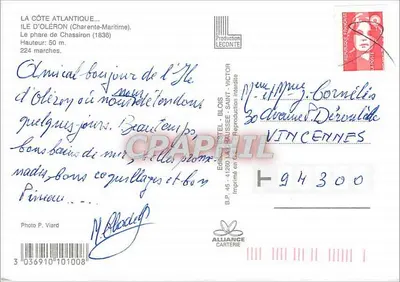 LA CÔTE ATLANTIQUE...
ILE D'OLÉRON (Charente-Maritime).
Le phare de Chassiron (1836)
Hauteur: 50 m.
224 marches.
Amical bonjour de l'Ile
d'Oléron où nous nous détendons
quelques jours. Beau temps,
bons bains de mer, belles prome-
nades, bons coquillages et bon
Pineau ....
Photo P. Viard
3 036910 101008
Production
LECONTE
BLOIS
B.P. 45 - 41260 LA CHAUSSÉE - SAINT-VICTOR
Imprimé en Reproduction interdite
ALLIANCE
CARTERIE
Cornélis
30 avenue Déroulède
VINCENNES
94300
CPAPHIL